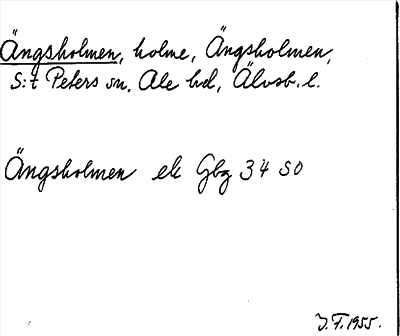 Ängsholmen, holme, Ängsholmen,
S:t Peters sn, Ale hd, Älvsb. l.
Ängsholmen ek Gbg 34 SO
J. F. 1955.